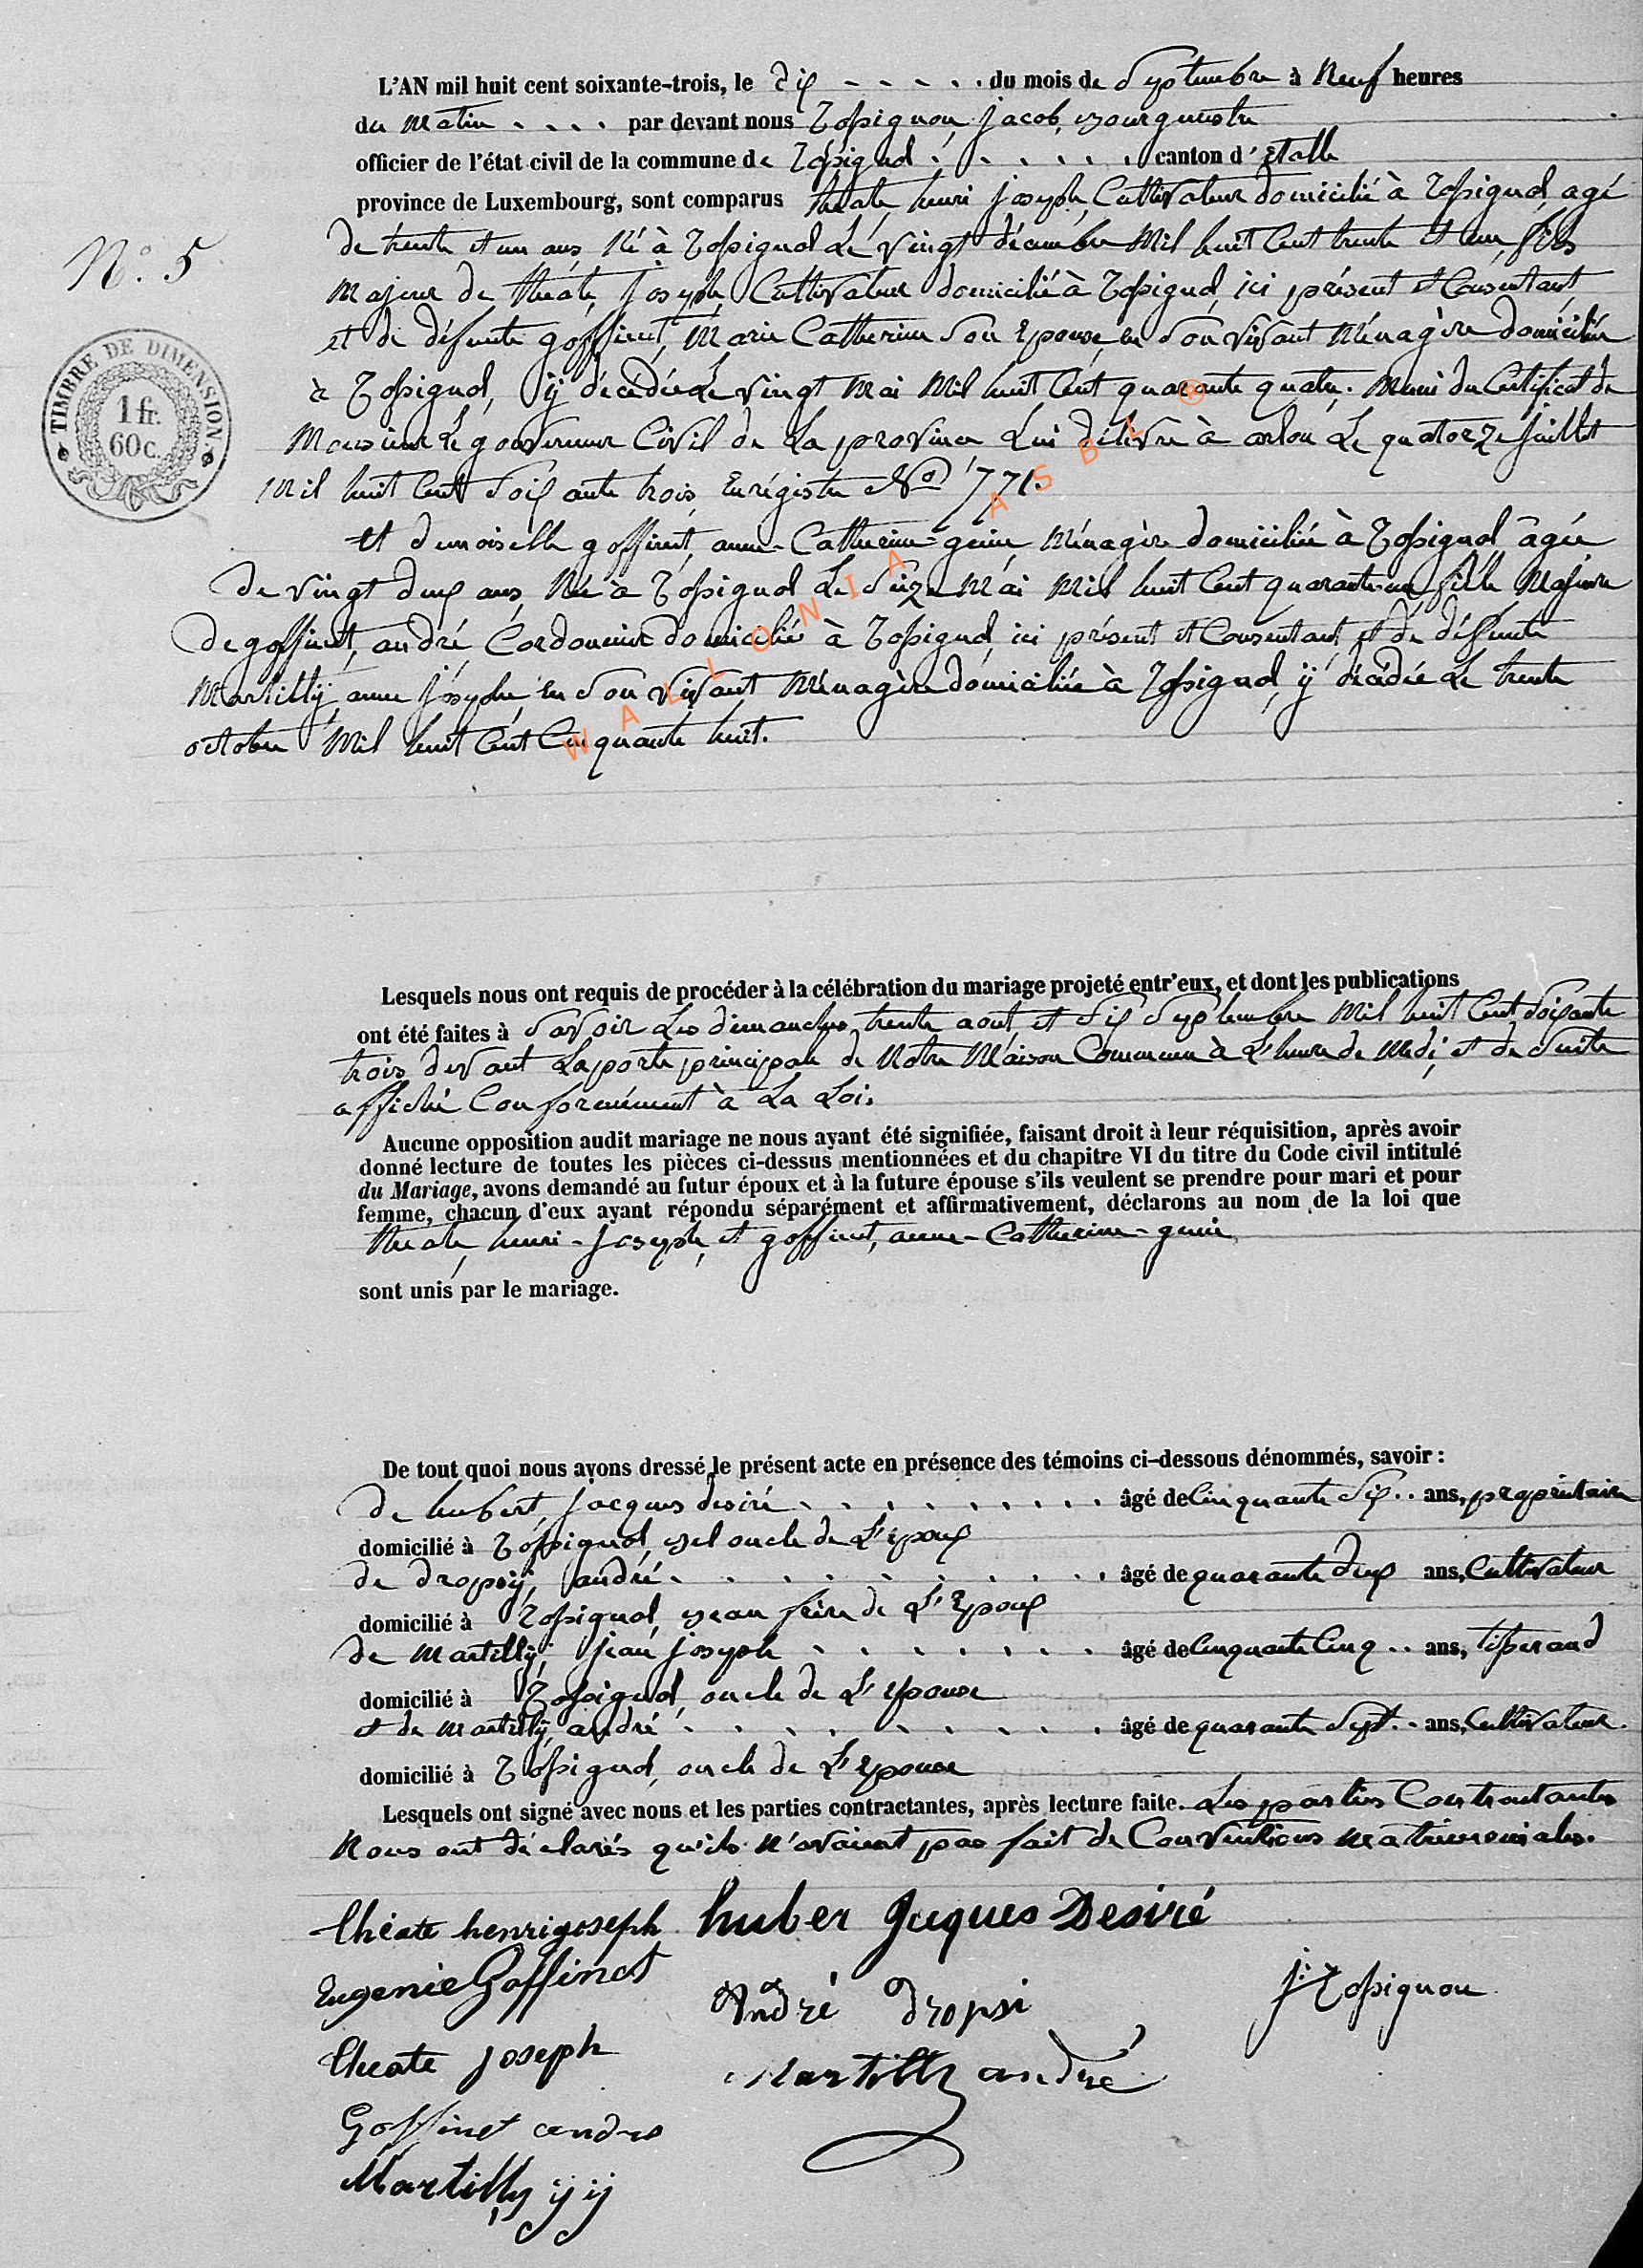 L'AN mil huit cent soixante-trois, le dix - - - - . du mois de Septembre à Neuf heures
du Matin . . . . par devant nous Rossignon, Jacob, Bourgmestre
officier de l'état civil de la commune de Rossignol . . . . . . canton d' Etalle
province de Luxembourg, sont comparus théate, henri joseph, Cultivateur domicilié à Rossignol, agé
N.° 5
de trente et un ans, Né à Rossignol Le vingt décembre Mil huit Cent trente et un, fils
Majeur de théate, Joseph, Cultivateur domicilié à Rossignol, ici présent et Consentant,
et de défunte goffinet, Marie Catherine Son Epouse, en Son vivant Ménagère domiciliée
à Rossignol, ÿ décédée Le vingt Mai Mil huit Cent quarante quatre. Muni du Certificat de
TIMBRE DE DIMENSION.
1 fr.
60c.
Monsieur Le gouverneur Civil de La province Lui délivré à arlon Le quatorze Juillet
Mil huit Cent Soixante trois, Enrégistré N° 771.
et demoiselle goffinet, anne-Catherine-genie, Ménagère domiciliée à Rossignol âgée
de vingt deux ans, Née à Rossignol Le Seize Mai Mil huit Cent quarante-un, fille Majeure
de goffinet, andré Cordonnier domicilié à Rossignol, ici présent et Consentant, et de défunte
Martilly, anne josephe, en Son vivant Ménagère domiciliée à Rossignol, ÿ décédée Le trente
octobre Mil huit Cent Cinquante huit.
WALLONIA ASBL ®
Lesquels nous ont requis de procéder à la célébration du mariage projeté entr'eux, et dont les publications
ont été faites à Savoir Les dimanches, trente aout, et Six Septembre Mil huit Cent Soixante
trois devant La porte principale de Notre Maison Commune à L'heure de Midi, et de Suite
affiché Conformément à La Loi.
Aucune opposition audit mariage ne nous ayant été signifiée, faisant droit à leur réquisition, après avoir
donné lecture de toutes les pièces ci-dessus mentionnées et du chapitre VI du titre du Code civil intitulé
du Mariage, avons demandé au futur époux et à la future épouse s'ils veulent se prendre pour mari et pour
femme, chacun d'eux ayant répondu séparément et affirmativement, déclarons au nom de la loi que
théate, henri-Joseph, et goffinet, anne-Catherine-genie
sont unis par le mariage.
De tout quoi nous avons dressé le présent acte en présence des témoins ci-dessous dénommés, savoir :
de hubert, jacques desiré . . . . . . . . . âgé de Cinquante Six . . ans, propriétaire
domicilié à Rossignol, bel oncle de L'époux
de dropsÿ, andré . . . . . . . . . âgé de quarante deux ans, Cultivateur
domicilié à Rossignol, beau frère de L'Epoux
de Martillÿ, jean joseph . . . . . . . âgé de Cinquante Cinq . . ans, tisserand
domicilié à Rossignol, oncle de L'épouse
et de Martillÿ, andré . . . . . . . . . âgé de quarante Sept . . ans, Cultivateur.
domicilié à Rossignol, oncle de L'épouse
Lesquels ont signé avec nous et les parties contractantes, après lecture faite. Les parties Contractantes
Nous ont déclarés qu'ils N'avaient pas fait de Conventions Matrimoniales.
théate henri joseph huber Jaques Desiré
Eugenie Goffinet André dropsi J: Rossignon
théate joseph Martilly andré
Goffinet andré
Martilly ij ij